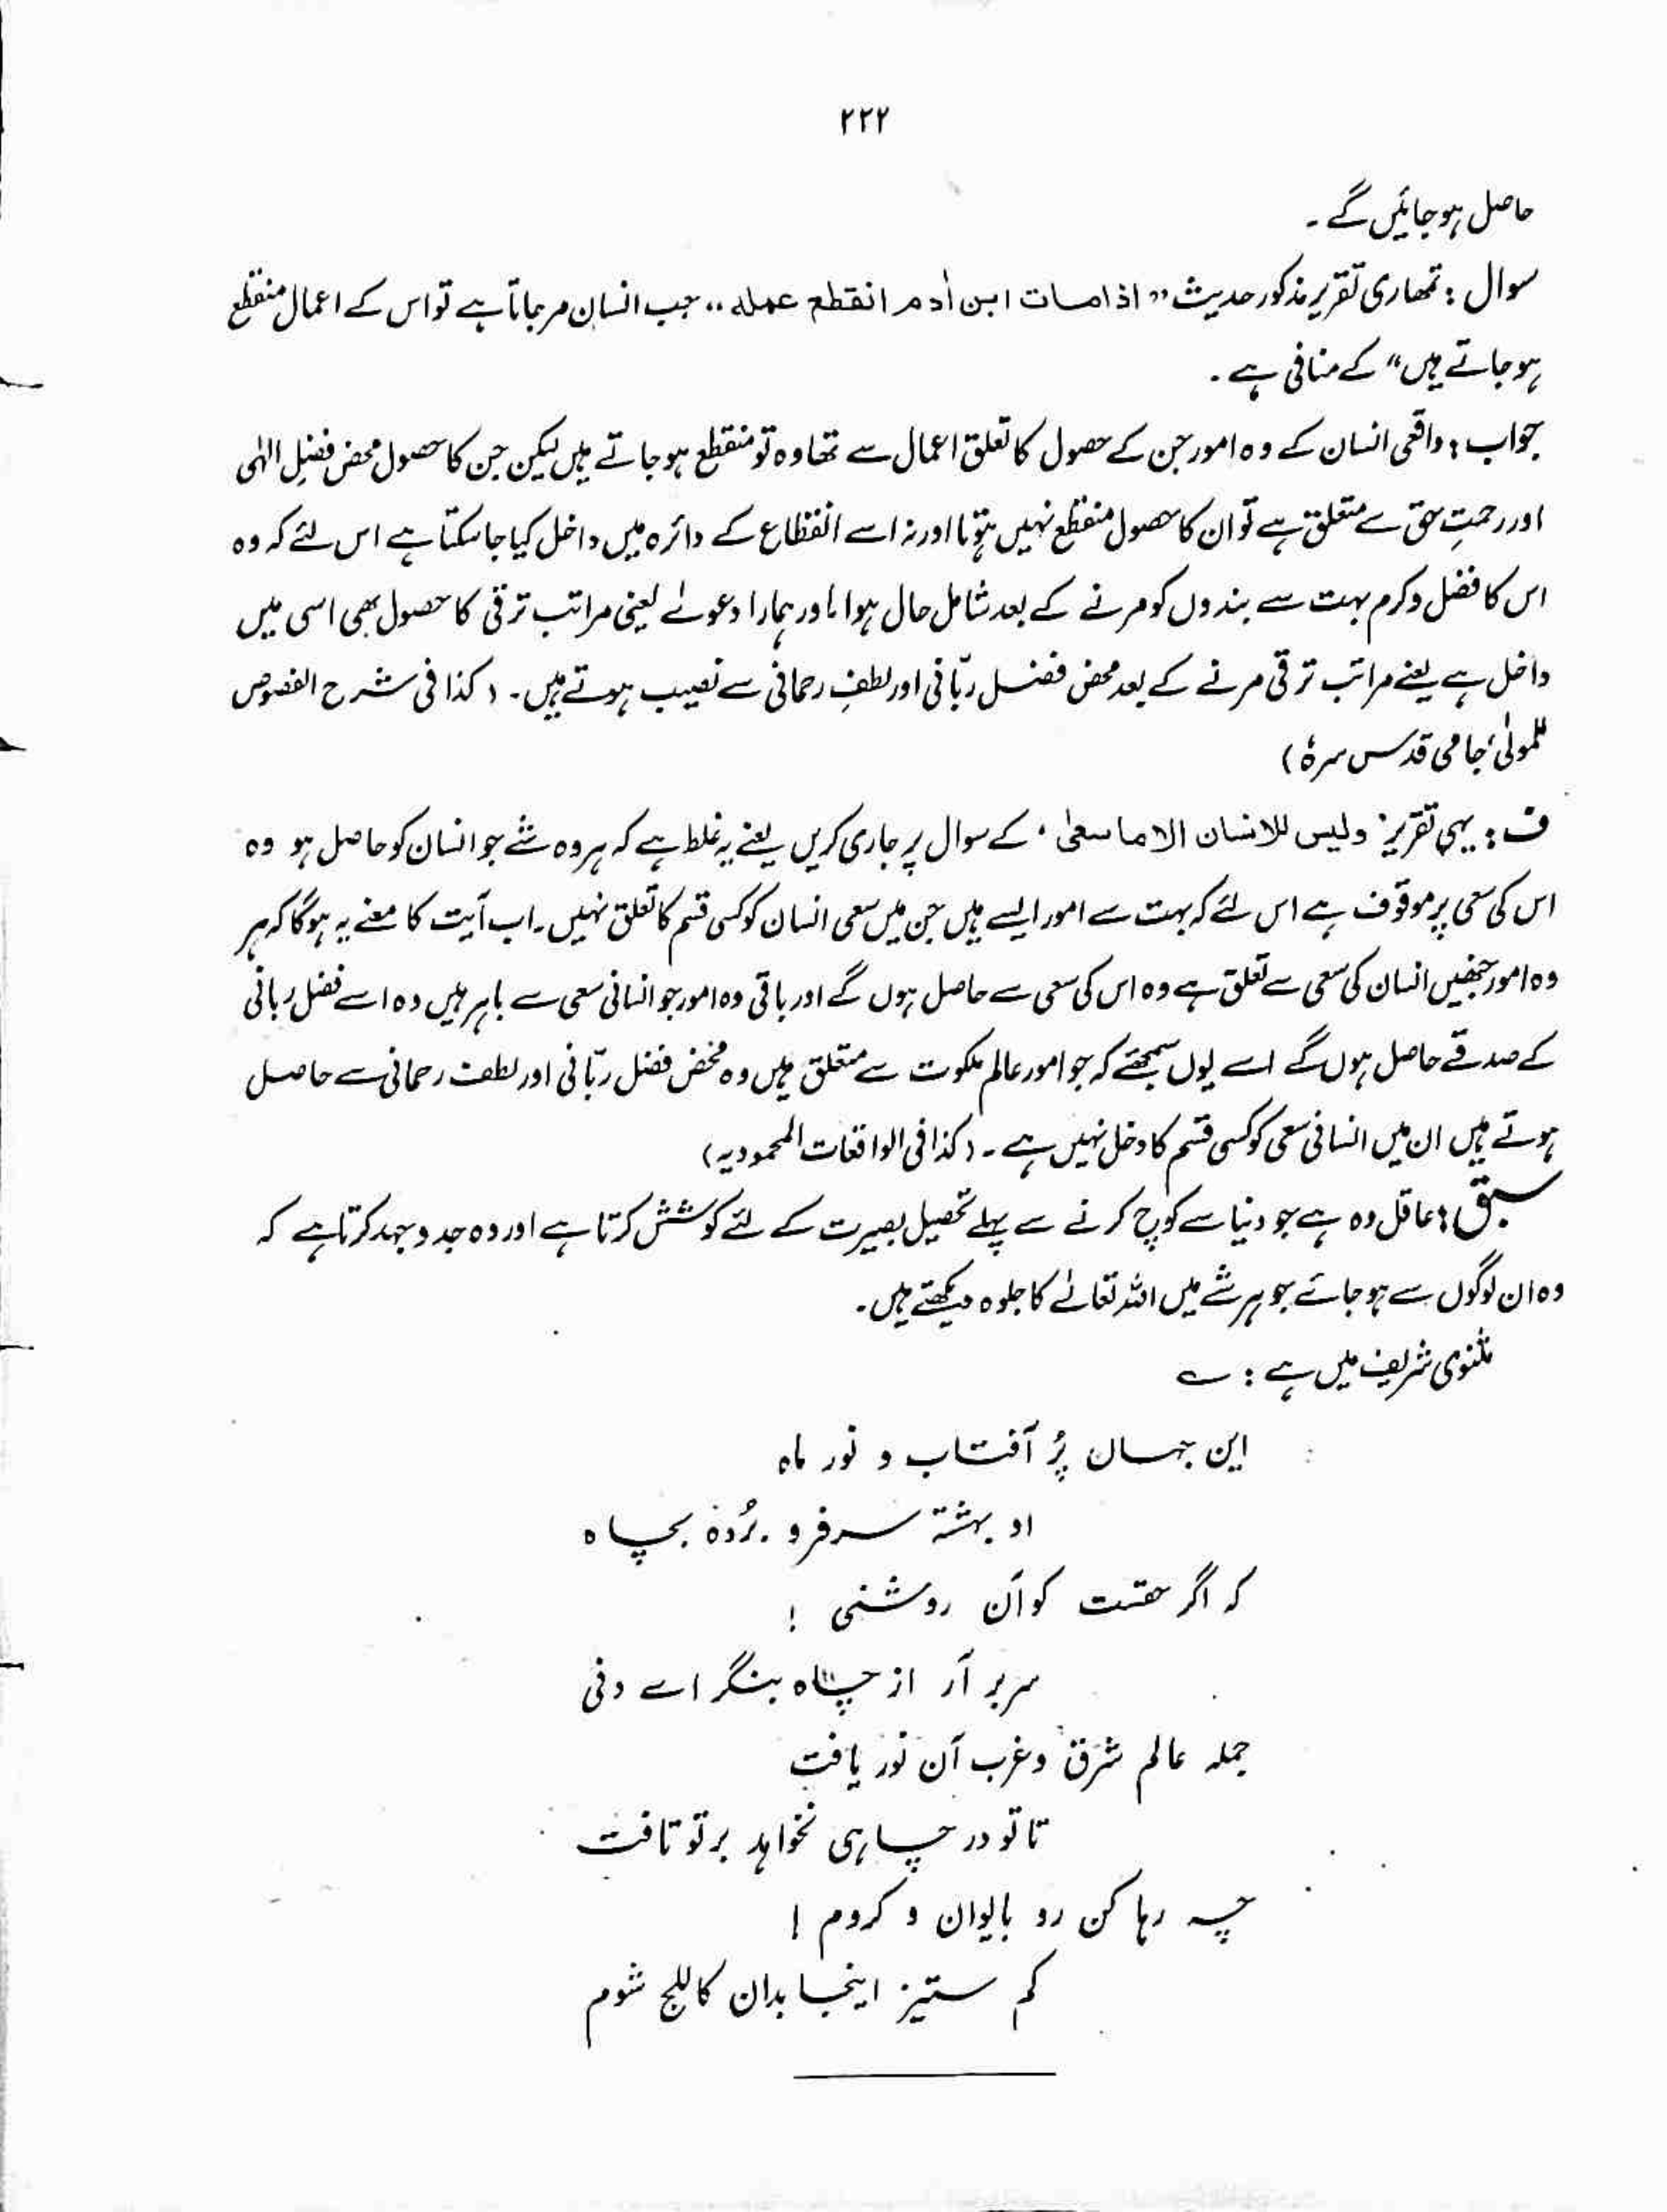 ۲۲۲
حاصل ہوجائیں گے۔
سوال : تمہاری تقریر مذکور حدیث ”اذا مات ابن اٰدم انقطع عملہ،، جب انسان مرجاتا ہے تو اس کے اعمال منقطع
ہوجاتے ہیں“ کے منافی ہے۔
جواب : واقعی انسان کے وہ امور جن کے حصول کا تعلق اعمال سے تھا وہ تو منقطع ہوجاتے ہیں لیکن جن کا حصول محض فضلِ الٰہی
اور رحمتِ حق سے متعلق ہے تو ان کا حصول منقطع نہیں ہوتا اور نہ اسے انقطاع کے دائرہ میں داخل کیا جاسکتا ہے اس لئے کہ وہ
اس کا فضل وکرم بہت سے بندوں کو مرنے کے بعد شامل حال ہوا، اور ہمارا دعوےٰ یعنی مراتب ترقی کا حصول بھی اسی میں
داخل ہے یعنے مراتب ترقی مرنے کے بعد محض فضل ربّانی اور لطفِ رحمانی سے نصیب ہوتے ہیں۔ (کذا فی شرح الفصوص
للمولیٰ جامی قدس سرہٗ)
ف : یہی تقریر ’ ولیس للانسان الا ما سعیٰ ‘ کے سوال پر جاری کریں یعنے یہ غلط ہے کہ ہر وہ شے جو انسان کو حاصل ہو وہ
اس کی سعی پر موقوف ہے اس لئے کہ بہت سے امور ایسے ہیں جن میں سعی انسان کو کسی قسم کا تعلق نہیں۔ اب آیت کا معنے یہ ہوگا کہ ہر
وہ امور جنھیں انسان کی سعی سے تعلق ہے وہ اس کی سعی سے حاصل ہوں گے اور باقی وہ امور جو انسانی سعی سے باہر ہیں وہ اسے فضل ربانی
کے صدقے حاصل ہوں گے اسے یوں سمجھئے کہ جو امور عالم ملکوت سے متعلق ہیں وہ محض فضل ربّانی اور لطف رحمانی سے حاصل
ہوتے ہیں ان میں انسانی سعی کو کسی قسم کا دخل نہیں ہے۔ (کذا فی الواقعات المحمودیہ)
سبق : عاقل وہ ہے جو دنیا سے کوچ کرنے سے پہلے تحصیل بصیرت کے لئے کوشش کرتا ہے اور وہ جدوجہد کرتا ہے کہ
وہ ان لوگوں سے ہوجائے جو ہر شے میں اللہ تعالےٰ کا جلوہ دیکھتے ہیں۔
مثنوی شریف میں ہے : ؎
این جہاں پُر آفتاب و نور ماہ
او بہشتہ سر فرو بُردہ بچاہ
کہ اگر حقست کو آن روشنی !
سر بر آر از چاہ بنگر اے دنی
جملہ عالم شرق وغرب آن نور یافت
تا تو در چاہی نخواہد بر تو تافت
چہ رہا کن رو بایوان و کروم !
کم ستیز اینجا بدان کاللج شوم